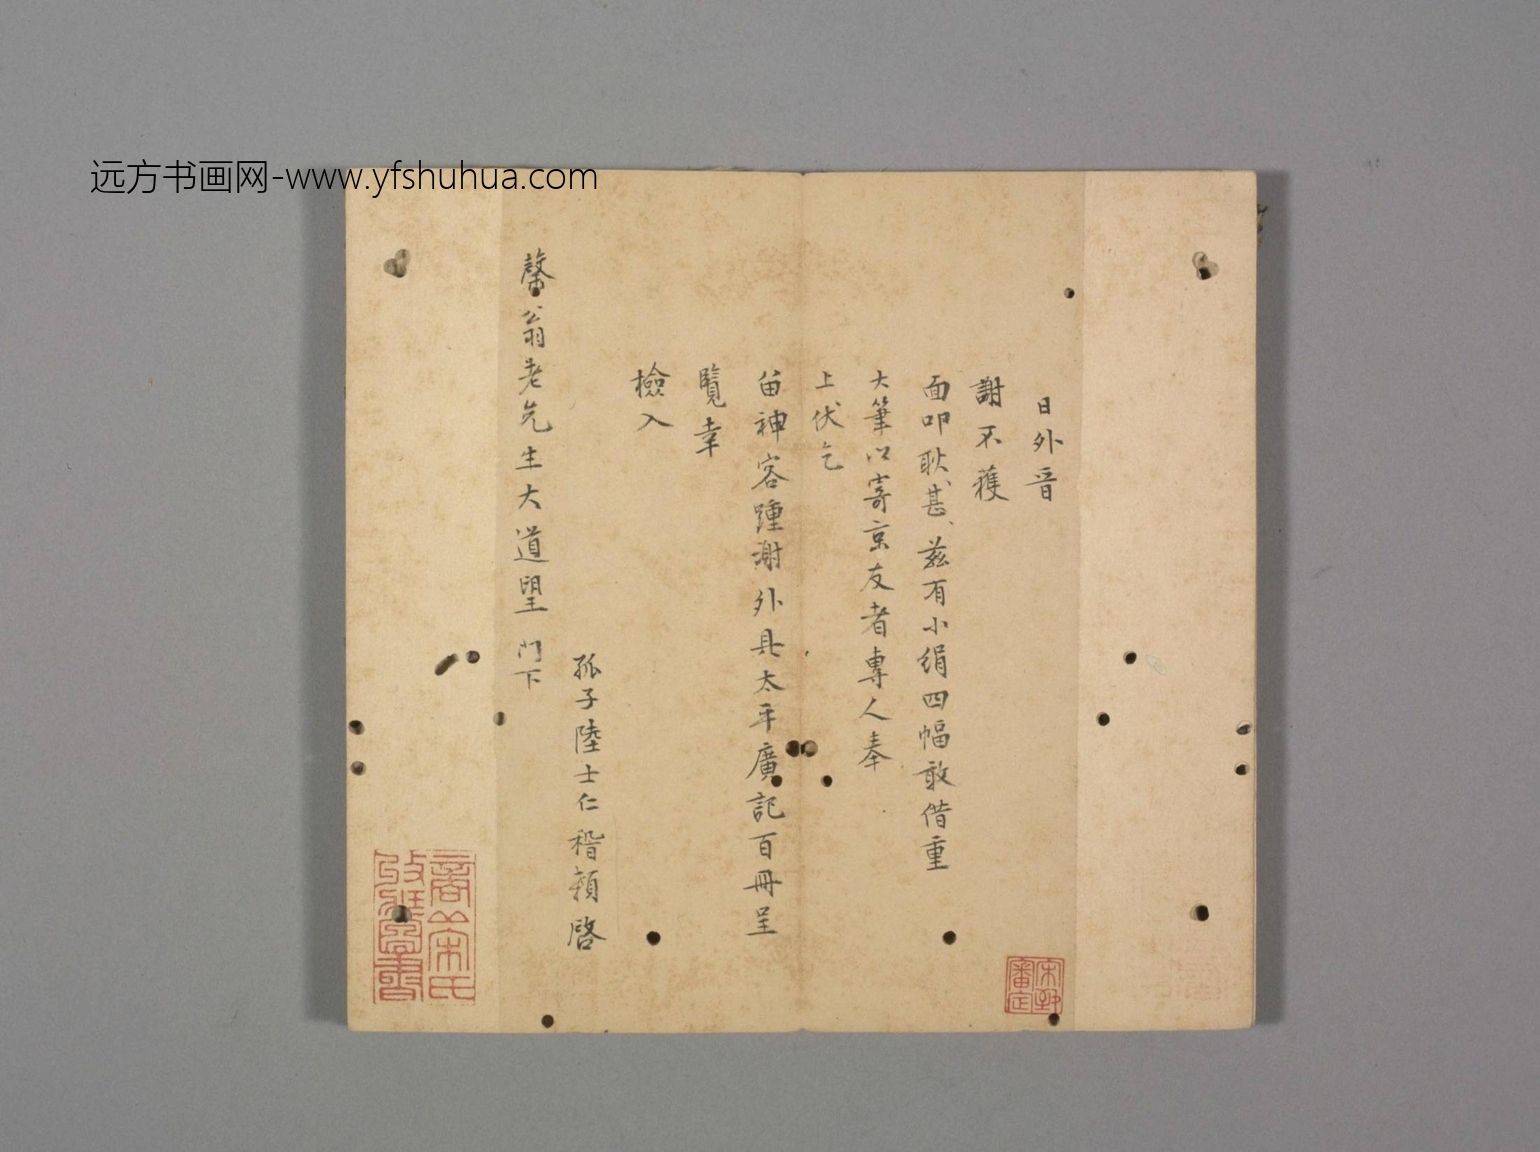 远方书画网-www.yfshuhua.com
日外晉
謝不獲
面叩耿甚、茲有小絹四幅敢借重
大筆以寄京友者專人奉
上伏乞
留神容踵謝外具太平廣記百冊呈
覽幸
檢入
孤子陸士仁稽顙啓
馨翁老先生大道望門下
商丘宋氏
收藏圖書
審定